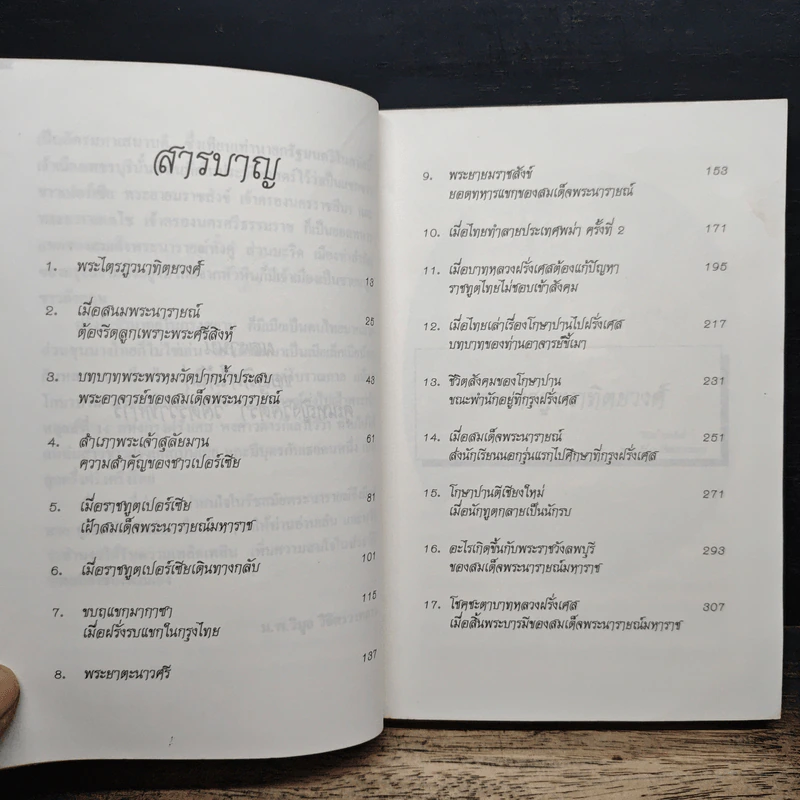 สารบาญ
1. พระไตรภูวนาทิตยวงศ์ 13
2. เมื่อสนมพระนารายณ์ 25
ต้องรีดลูกเพราะพระศรีสิงห์
3. บทบาทพระพรหมวัดปากน้ำประสบ 43
พระอาจารย์ของสมเด็จพระนารายณ์
4. สำเภาพระเจ้าสุลัยมาน 61
ความสำคัญของชาวเปอร์เซีย
5. เมื่อราชทูตเปอร์เซีย 81
เฝ้าสมเด็จพระนารายณ์มหาราช
6. เมื่อราชทูตเปอร์เซียเดินทางกลับ 101
7. ขบถแขกมากาซา 115
เมื่อฝรั่งรบแขกในกรุงไทย
8. พระยาตะนาวศรี 137
9. พระยายมราชสังข์ 153
ยอดทหารแขกของสมเด็จพระนารายณ์
10. เมื่อไทยทำลายประเทศพม่า ครั้งที่ 2 171
11. เมื่อบาทหลวงฝรั่งเศสต้องแก้ปัญหา 195
ราชทูตไทยไม่ชอบเข้าสังคม
12. เมื่อไทยเล่าเรื่องโกษาปานไปฝรั่งเศส 217
บทบาทของท่านอาจารย์ขี้เมา
13. ชีวิตสังคมของโกษาปาน 231
ขณะพำนักอยู่ที่กรุงฝรั่งเศส
14. เมื่อสมเด็จพระนารายณ์ 251
ส่งนักเรียนนอกรุ่นแรกไปศึกษาที่กรุงฝรั่งเศส
15. โกษาปานตีเชียงใหม่ 271
เมื่อนักทูตกลายเป็นนักรบ
16. อะไรเกิดขึ้นกับพระราชวังลพบุรี 293
ของสมเด็จพระนารายณ์มหาราช
17. โชคชะตาบาทหลวงฝรั่งเศส 307
เมื่อสิ้นพระบารมีของสมเด็จพระนารายณ์มหาราช